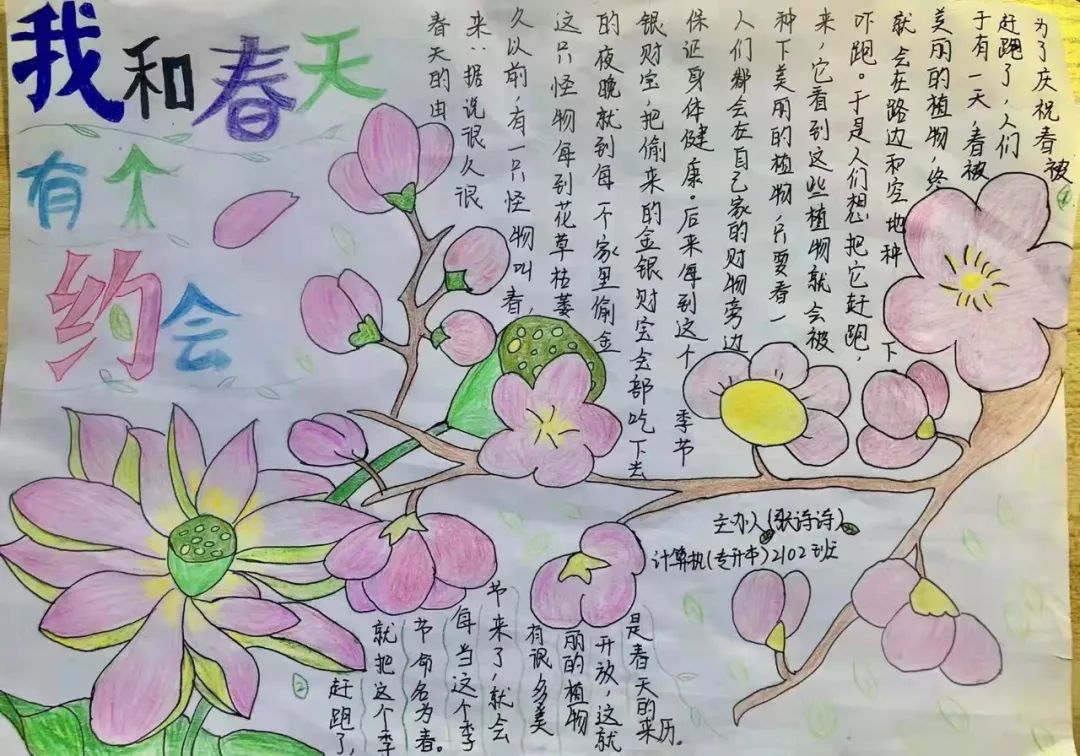 我和春天
有个
约会
春天的由
来:据说很久很
久以前,有一只怪物叫春,
这只怪物每到花草枯萎
的夜晚就到每一个家里偷金
银财宝,把偷来的金银财宝全部吃下去
保证身体健康。后来每到这个季节
人们都会在自己家的财物旁边
种下美丽的植物,只要春一
来,它看到这些植物就会被
吓跑。于是人们想把它赶跑,
就会在路边和空地种下
美丽的植物,终
于有一天,春被
赶跑了,人们
为了庆祝春被
①
②
赶跑了,
就把这个季
节命名为春。
每当这个季
节来了,就会
有很多美
丽的植物
开放,这就
是春天的来历。
主办人(张诗诗)
计算机(专升本)2102班